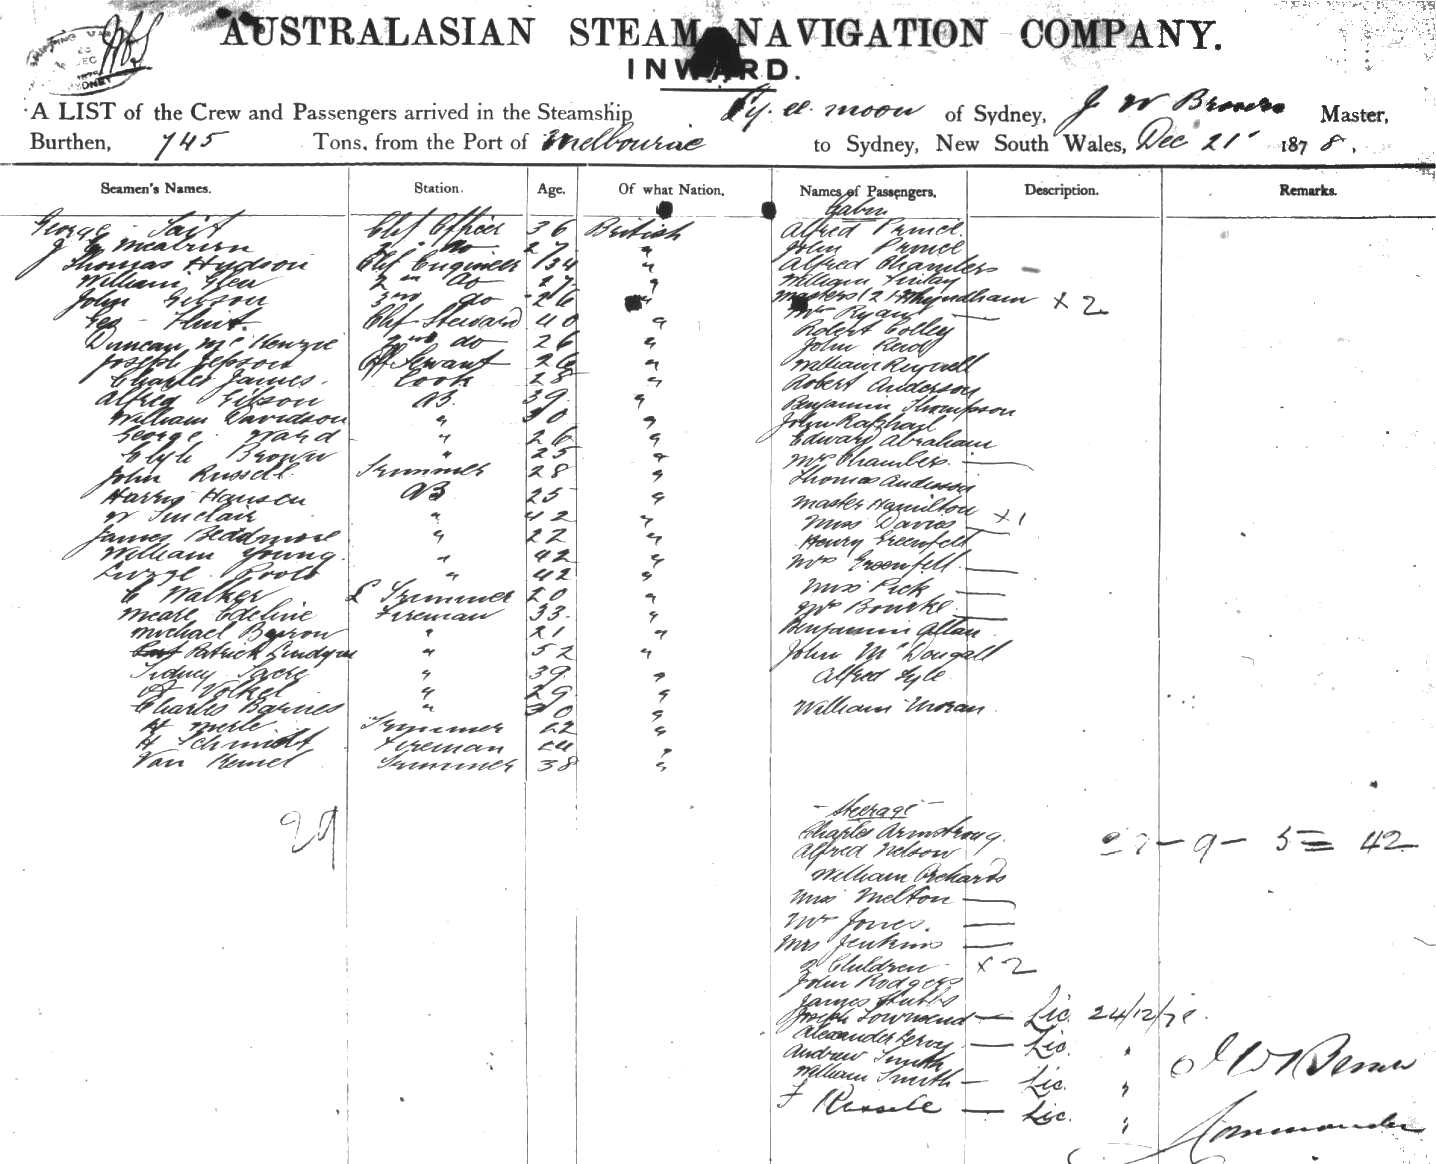 AUSTRALASIAN STEAM NAVIGATION COMPANY.
INWARD.
A LIST of the Crew and Passengers arrived in the Steamship Ly. ee. moon of Sydney, J W Brown Master,
Burthen, 745 Tons, from the Port of Melbourne to Sydney, New South Wales, Dec 21 1878.
Seamen's Names. Station. Age. Of what Nation. Names of Passengers. Description. Remarks.
Cabin
George Tait Chf Officer 36 British Alfred Prince
J G Meaburn 2 do 27 " John Prince
Thomas Hudson Chf Engineer 34 " Alfred Chambers
William Glen 2nd do 27 " William Finlay
John Gibson 3rd do 26 " Masters (2) Whyndham x 2
Geo Flint. Chf Steward 40 " Mrs Ryan
Duncan McKenzie 2nd do 26 " Robert Colley
Joseph Jepson Off Servant 26 " John Read
Charles James. Cook 28 " William Reynell
Alfred Gibson AB. 39 " Robert Anderson
William Davidson " 30 " Benjamin Thompson
George Ward " 26 " John Raphael
Brown " 25 " Edward Abraham
John Russell Trimmer 28 " Mrs Chambers
Harris Hansen AB 25 " Thomas Anderson
W Sinclair " 42 " Master Hamilton x 1
James Beddmore " 22 " Miss Davies
William Young " 42 " Henry Greenfell
" 42 " Mrs Greenfell
C Walker Trimmer 20 " Miss Pick
Edeline Fireman 33 " Mrs Bourke
Michael Barron " 21 " Benjamin Allan
Patrick " 52 " John McDougall
Sidney " 39 " Alfred Lyle
Volkel " 29 "
Charles Barnes " 30 " William Moran
H Merle Trimmer 22 "
H Schmidt Fireman 24 "
Van Trimmer 38 "
29
- Steerage -
Charles Armstrong. 27 - 9 - 5 = 42
Alfred Nelson
William Orchards
Miss Melton
Mrs Jones.
Mrs Jenkins
2 Children x 2
John Rodgers
James Stubbs
Joseph Townsend - Lic. 24/12/78.
Alexander Leroy - Lic. "
Andrew Smith
William Smith - Lic. "
F Russell - Lic. "
J W Brown
Commander